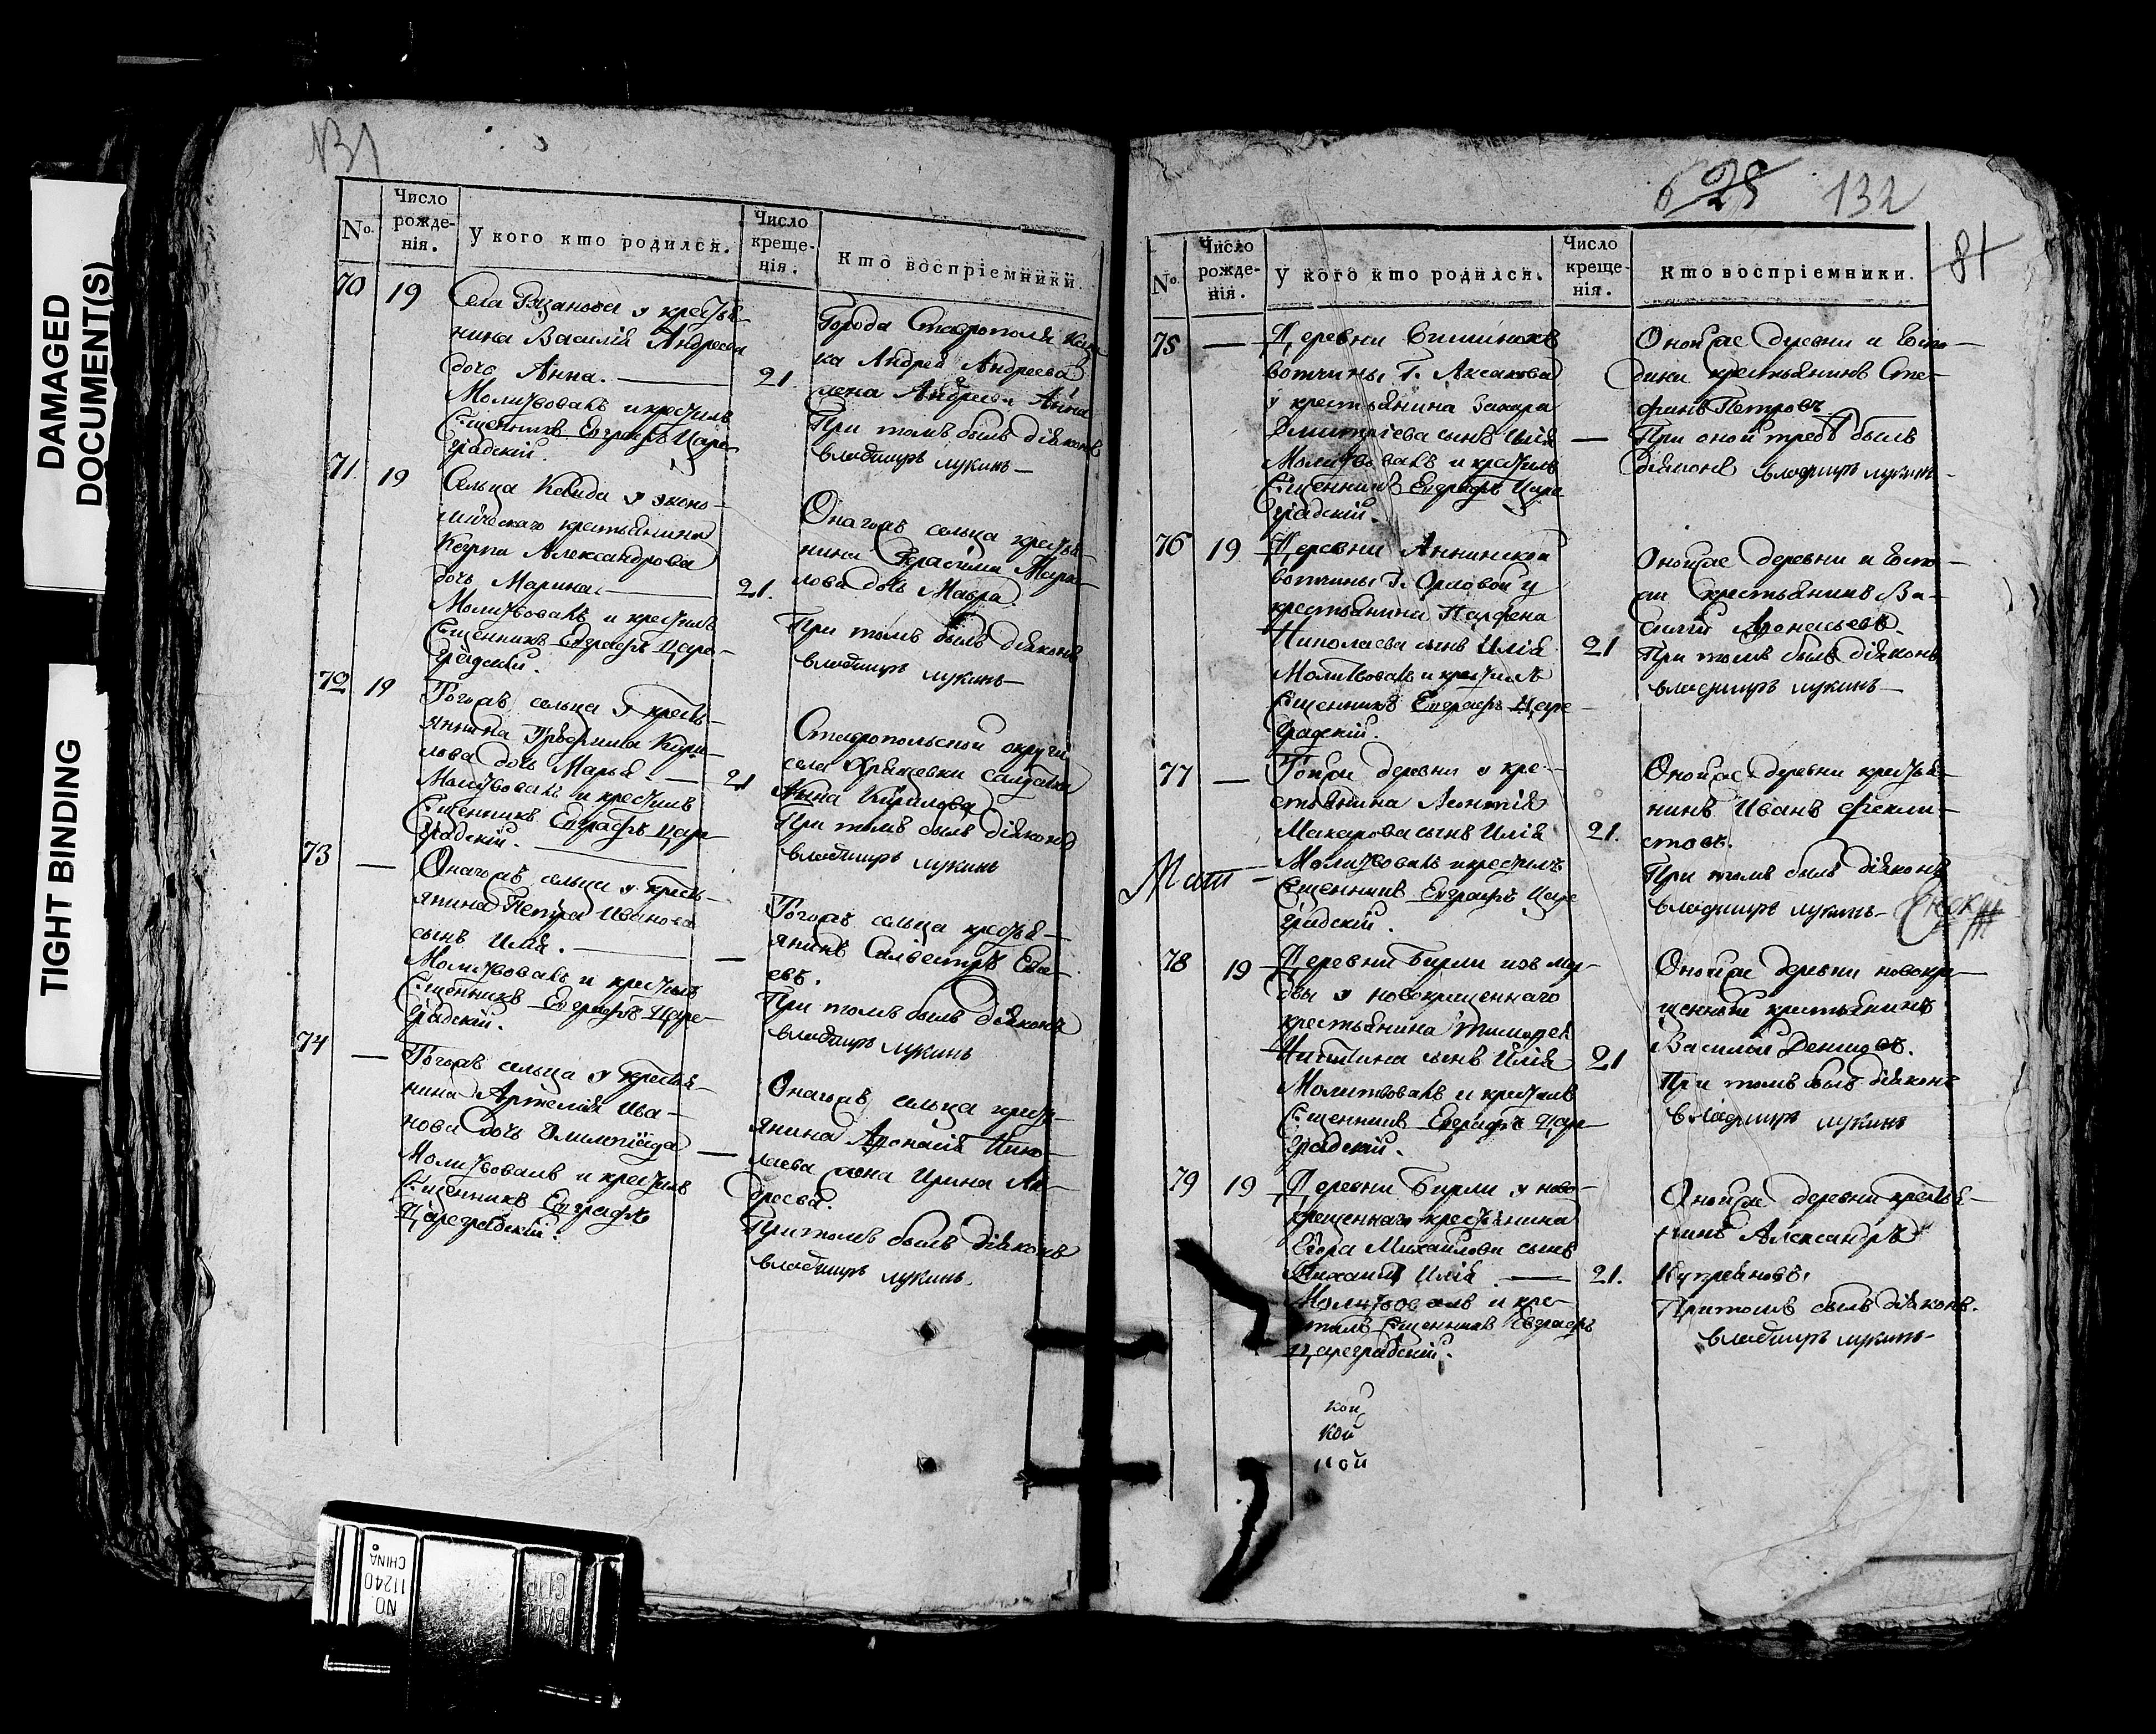 DAMAGED
DOCUMENT(S)
TIGHT BINDING
131
No.
Число
рожде-
нія.
У кого кто родился.
Число
креще-
нія.
Кто воспріемники
70
19
Села Рязанова у крестья-
нина Василія Андреева
дочь Анна.
21
Молитвовалъ и крестилъ
Сщенникъ Евграфъ Царе-
градскій.
Города Ставрополя
ка Андрея Андреева
жена Анна
При томъ былъ діаконъ
владимиръ лукинъ
71
19
Сельца Кенда у эконо-
мическаго крестьянина
Карпа Александрова
дочь Марина
21.
Молитвовалъ и крестилъ
Сщенникъ Евграфъ Царе-
градскій.
Онагожъ сельца крестья-
нина Герасима
лова дочь Мавра.
При томъ былъ діаконъ
владимиръ лукинъ
72
19
Тогожъ сельца у кресть-
янина Трофима Кири-
лова дочь Марья
21
Молитвовалъ и крестилъ
Сщенникъ Евграфъ Царе-
градскій.
Ставропольской округи
села Хрящевки салдатка
Анна Кирилова
При томъ былъ діаконъ
владимиръ лукинъ
73
—
Онагожъ сельца у кресть-
янина Петра Иванова
сынъ Илія.
—
Молитвовалъ и крестилъ
Сщенникъ Евграфъ Царе-
градскій.
Тогожъ сельца крестья-
янинъ Силвестръ
евъ.
При томъ былъ діаконъ
владимиръ лукинъ
74
—
Тогожъ сельца у крестья-
нина Артемія Ива-
нова дочь Олимпіада
—
Молитвовалъ и крестилъ
Сщенникъ Евграфъ
Цареградскій.
Онагожъ сельца кресть-
янина Афонасія Нико-
лаева жена Ирина Ан-
дреева.
При томъ былъ діаконъ
владимиръ лукинъ.
625 132
81
No.
Число
рожде-
нія.
У кого кто родился.
Число
креще-
нія.
Кто воспріемники.
75
—
Деревни
вотчины Г. Аксакова
у крестьянина Захара
Дмитріева сынъ Илія
—
Молитвовалъ и крестилъ
Сщенникъ Евграфъ Царе
градскій.
Онойже деревни и Госпо-
дина крестьянинъ Сте-
фанъ Петровъ
При оной требѣ былъ
діаконъ владимиръ лукинъ
76
19
Деревни Аннинской
вотчины Г. Орловой у
крестьянина Парфена
Николаева сынъ Илія
21
Молитвовалъ и крестилъ
Сщенникъ Евграфъ Царе-
градскій.
Онойже деревни и Госпо-
жи крестьянинъ Ва-
силій Афонасьевъ.
При томъ былъ діаконъ
владимиръ лукинъ
77
—
Тойже деревни у кре-
стьянина Леонтія
Макарова сынъ Илія
21.
Молитвовалъ и крестилъ
Сщенникъ Евграфъ Царе
градскій.
Онойже деревни крестья-
нинъ Иванъ Фекли-
стовъ.
При томъ былъ діаконъ
владимиръ лукинъ
78
19
Деревни Бирли изъ мор-
двы у новокрещеннаго
крестьянина Тимофея
Никитина сынъ Илія
21
Молитвовалъ и крестилъ
Сщенникъ Евграфъ Царе
градскій.
Онойже деревни новокре-
щенный крестьянинъ
Василій Денисовъ.
При томъ былъ діаконъ
владимиръ лукинъ
79
19
Деревни Бирли у ново-
крещеннаго крестьянина
Егора Михайлова сынъ
Илія.
21.
Молитвовалъ и кре-
стилъ Сщенникъ Евграфъ
Цареградскій.
Онойже деревни крестья-
нинъ Александръ
Купреяновъ.
При томъ былъ діаконъ.
владимиръ лукинъ
кой
кой
кой
NO.
11240
CHINA